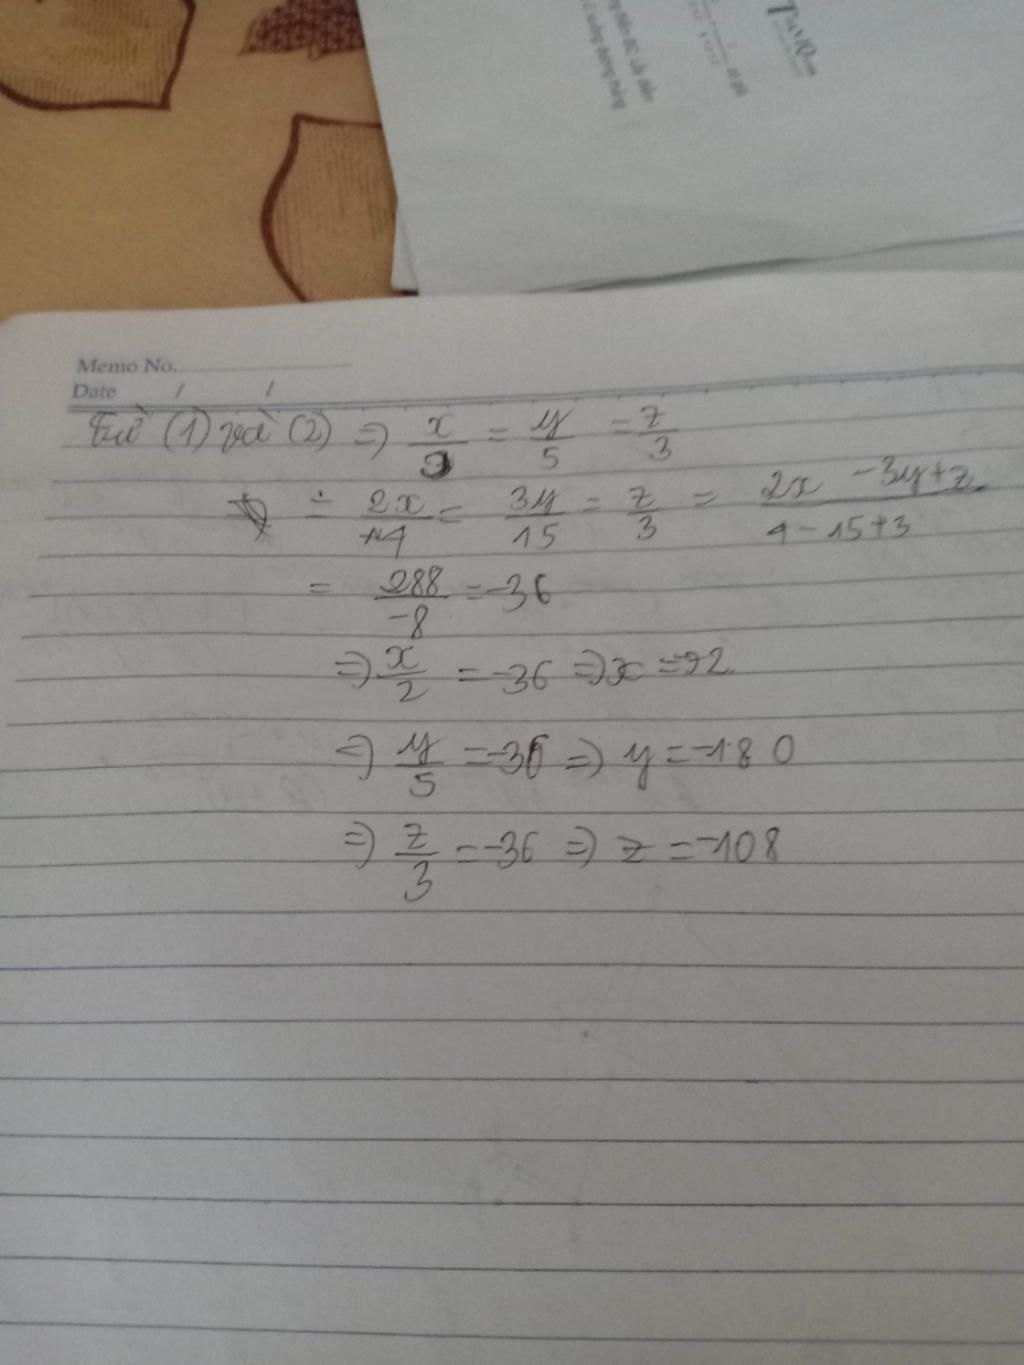 Memo No.
Date / /
Từ (1) và (2) => x/2 = y/5 = z/3
= 2x/4 = 3y/15 = z/3 = 2x - 3y + z / 4 - 15 + 3
= 288/-8 = -36
=> x/2 = -36 => x = -72
=> y/5 = -36 => y = -180
=> z/3 = -36 => z = -108